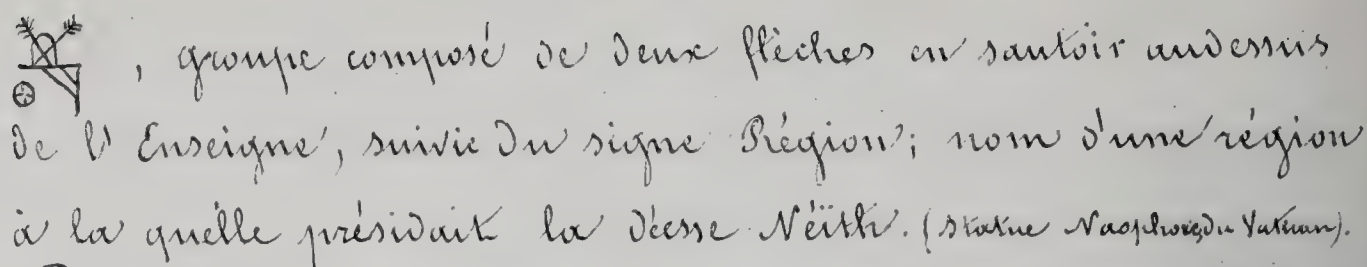 , groupe composé de deux flèches en sautoir audessus
de l'Enseigne, suivie du signe Région; nom d'une région
à la quelle présidait la déesse Néïth. (Statue Naophore du Vatican).